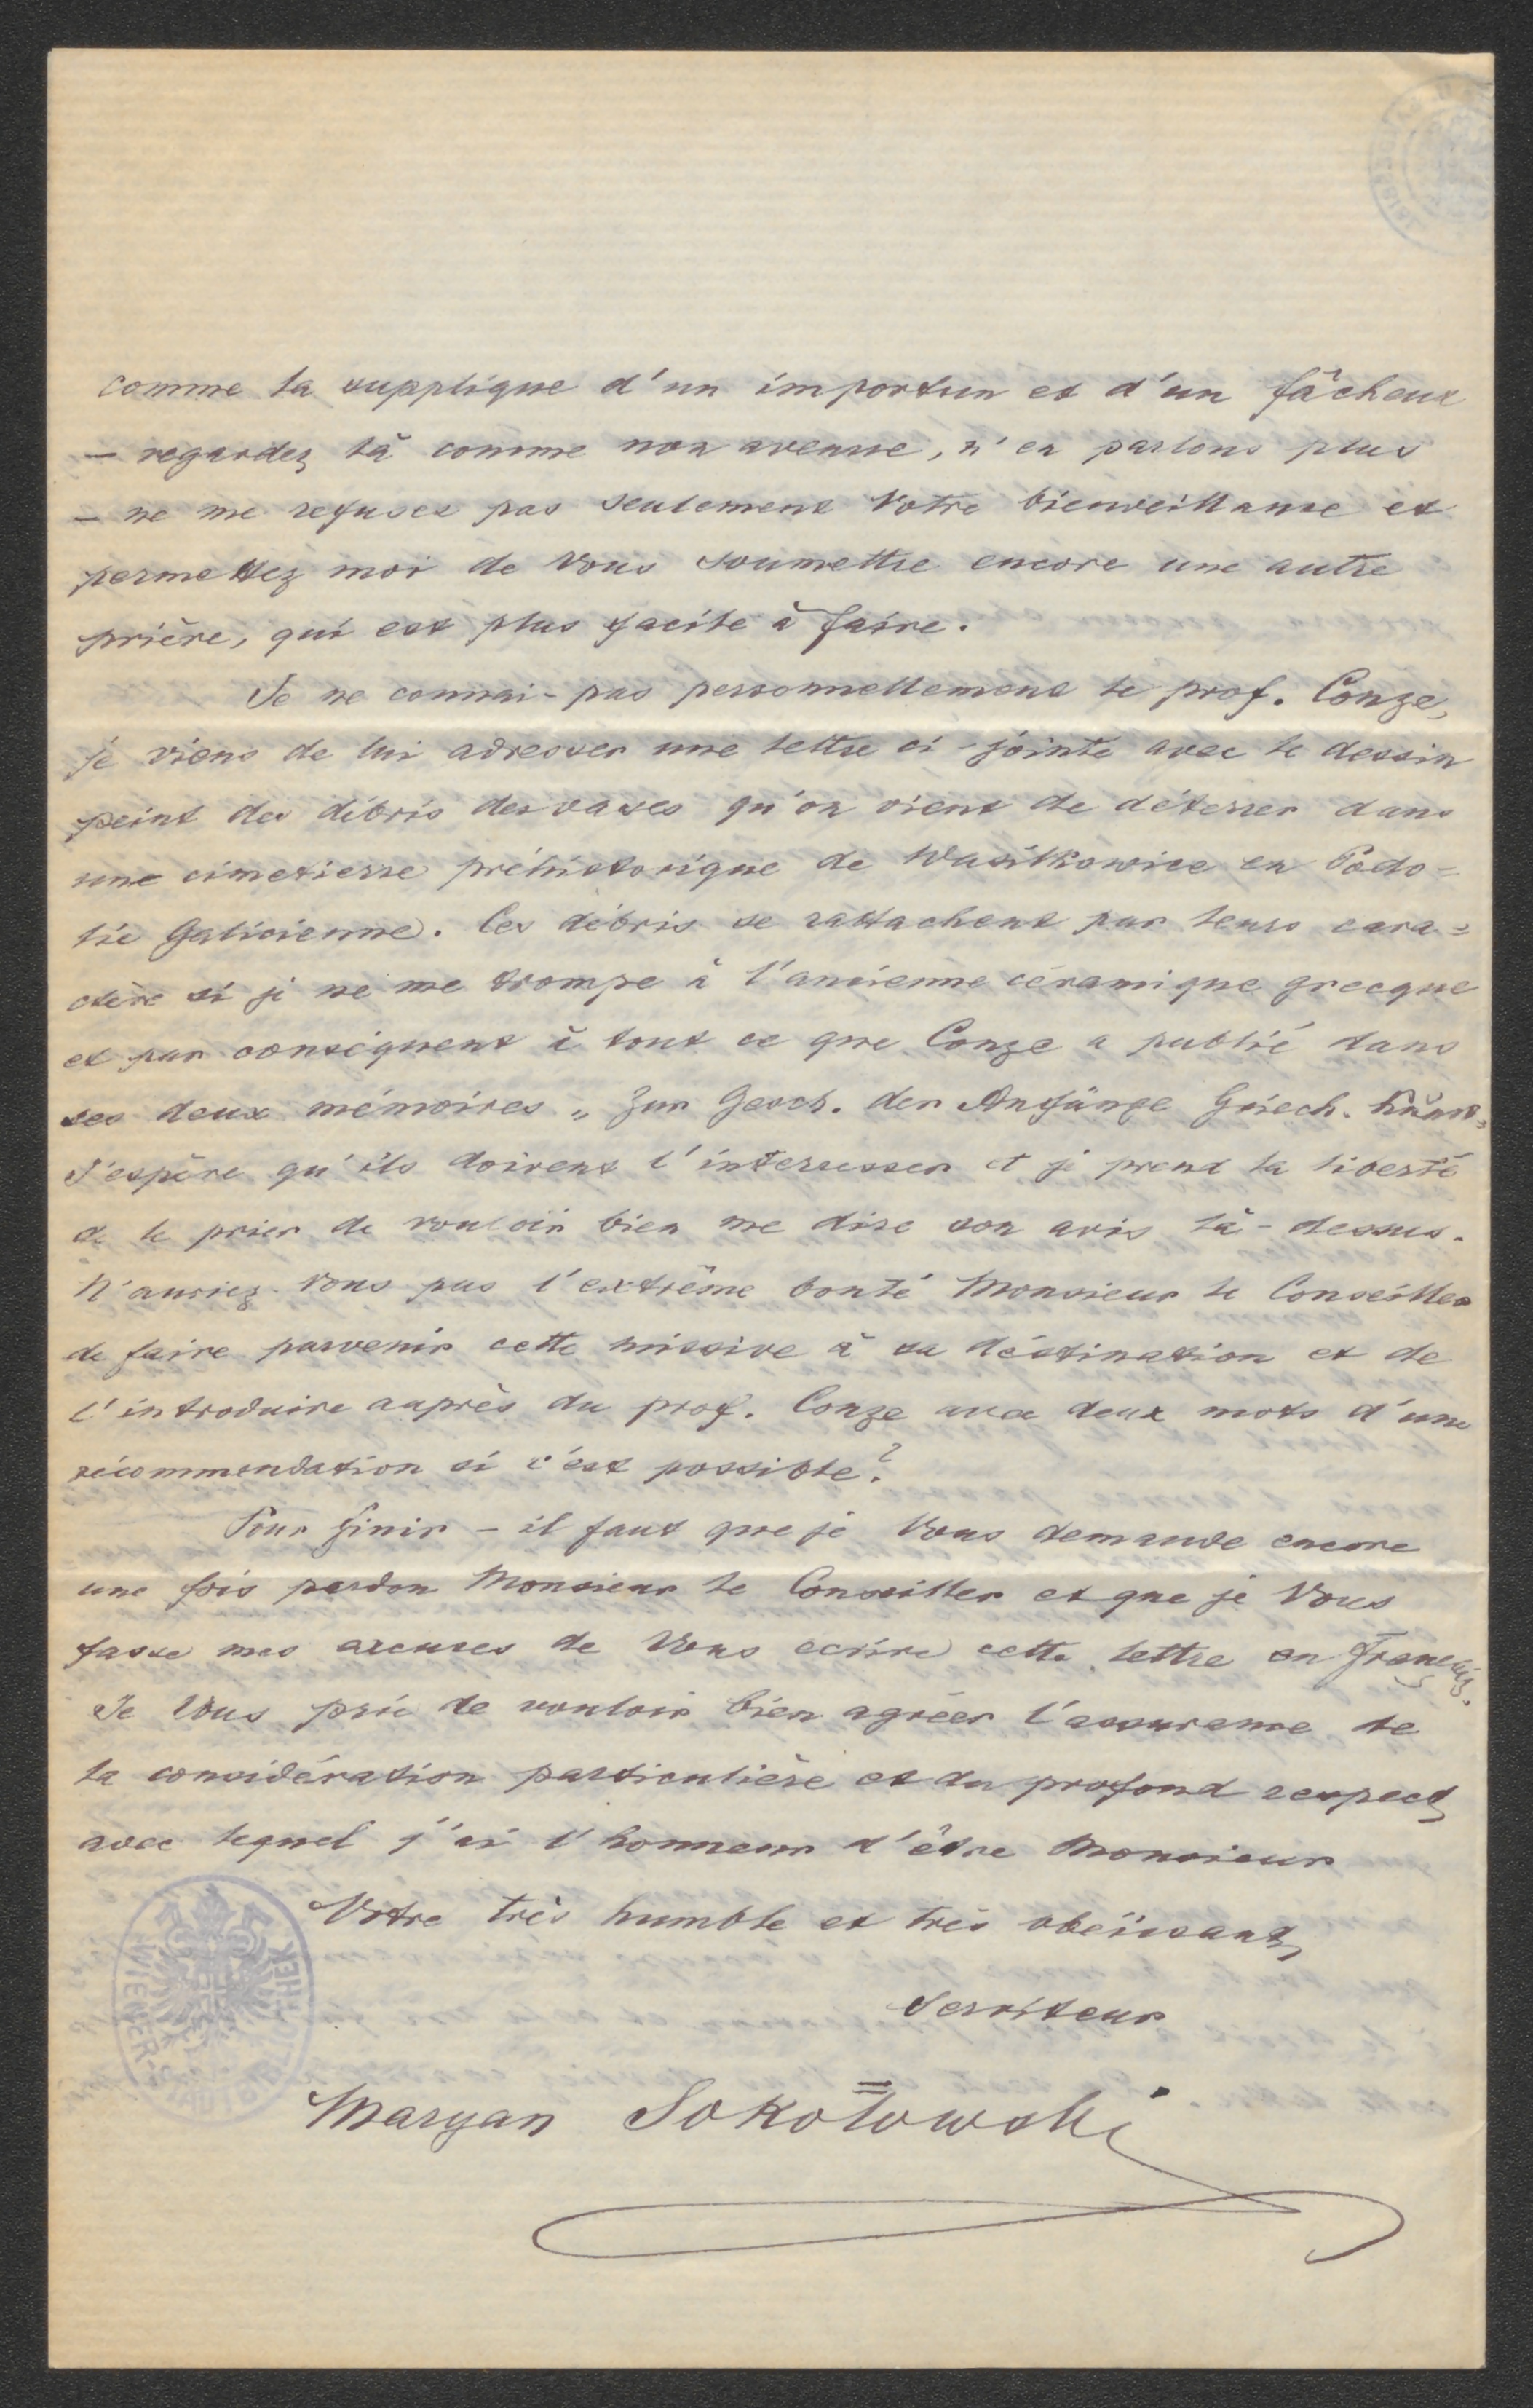 comme la supplique d'un importun et d'un fâcheux
— regardez là comme non avenue, n'en parlons plus
— ne me refusez pas seulement Votre bienveillance et
permettez moi de Vous soumettre encore une autre
prière, qui est plus facile à faire.
Je ne connai-pas personnellement le prof. Conze,
je viens de lui adresser une lettre ci-jointe avec le dessin
peint des débris des vases qu'on vient de déterrer dans
une cimetierre préhistorique de Wasilkowice en Podo=
lie Galicienne. Ces débris se rattachent par leurs cara=
ctère si je ne me trompe à l'ancienne céramique grecque
et par conséquent à tout ce que Conze a publié dans
ses deux mémoires „Zur Gesch. der Anfänge Griech. Kunst„
J'espère qu'ils doivent l'interresser et je prend la liberté
de le prier de vouloir bien me dire son avis là-dessus.
N'auriez Vous pas l'extrême bonté Monsieur le Conseiller
de faire parvenir cette missive à sa déstination et de
l'introduire auprès du prof. Conze avec deux mots d'une
récommendation si c'est possible?
Pour finir — il faut que je Vous demande encore
une fois pardon Monsieur le Conseiller et que je Vous
fasse mes excuses de Vous ecrire cette lettre en Français.
Je Vous prie de vouloir bien agréer l'assurance de
la considération particulière et du profond respect
avec lequel j'ai l'honneur d'être Monsieur
Votre très humble et très obeïssant
serviteur
Maryan Sokołowski
WIENER-STADTBIBLIOTHEK